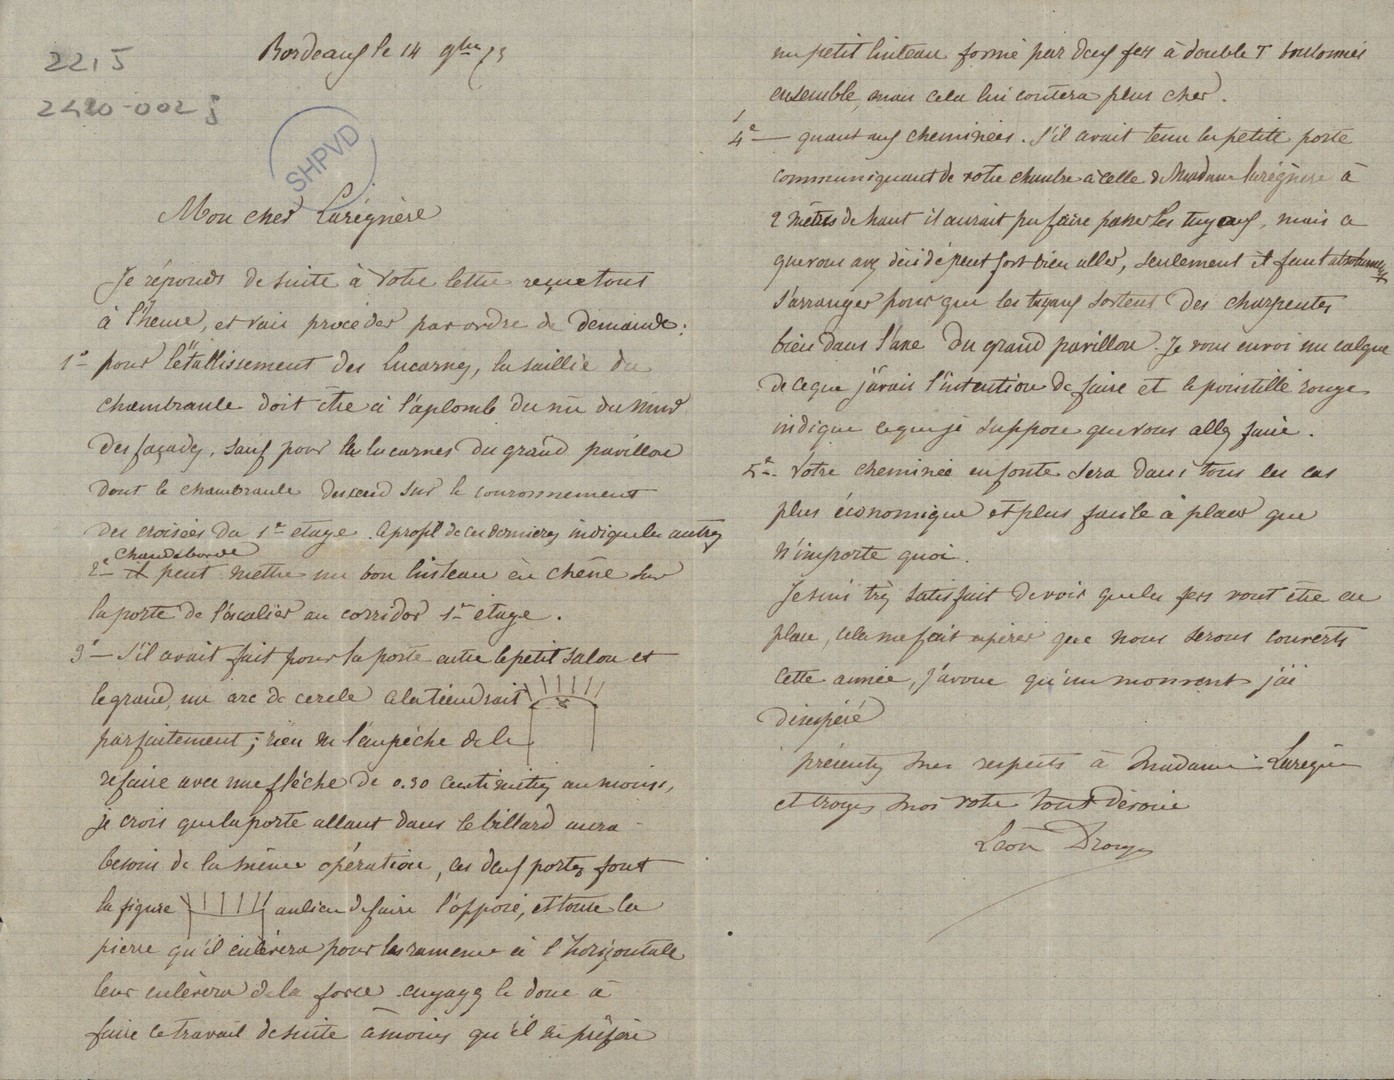 2215
2420-002 j
SHPVD
Bordeaux le 14 9bre 75
Mon cher Larégnère
Je réponds de suite à votre lettre reçue tout
à l'heure, et vais procéder par ordre de demande :
1° pour l'établissement des Lucarnes, la saillie du
chambranle doit être à l'aplomb du nu du mur
des façades, sauf pour les lucarnes du grand pavillon
dont le chambranle descend sur le couronnement
des croisées du 1er étage. le profil de ces dernières indique les autres
2° il peut mettre un bon linteau en chêne sur
la porte de l'escalier au corridor 1er étage.
3° — S'il avait fait pour la porte entre le petit salon et
le grand, un arc de cercle cela tiendrait
parfaitement ; rien ne l'empêche de le
refaire avec une flèche de 0.30 centimètres au moins,
je crois que la porte allant dans le billard aura
besoin de la même opération, ces deux portes font
la figure au lieu de faire l'opposé, et toute la
pierre qu'il enlèvera pour les ramener à l'horizontale
leur enlèvera de la force. engagez le donc à
faire ce travail de suite à moins qu'il ne préfère
un petit linteau formé par deux fers à double T boulonnés
ensemble, mais cela lui coûtera plus cher.
4° — quant aux cheminées. S'il avait tenu la petite porte
communiquant de votre chambre à celle de Madame Larégnère à
2 mètres de haut il aurait pu faire passer les tuyaux, mais ce
que vous avez décidé peut fort bien aller, seulement il faut absolument
s'arranger pour que les tuyaux sortent des charpentes
bien dans l'axe du grand pavillon. Je vous envoi un calque
de ce que j'avais l'intention de faire et le pointillé rouge
indique ce que je suppose que vous allez faire.
5° — Votre cheminée en fonte sera dans tous les cas
plus économique et plus facile à placer que
n'importe quoi.
Je suis très satisfait de voir que les fers vont être en
place, cela me fait espérer que nous serons couverts
cette année, j'avoue qu'un moment j'ai
désespéré
présentez mes respects à Madame Larégnère
et croyez moi votre tout dévoué
Léon Drouyn